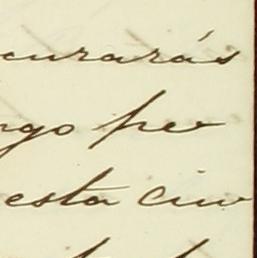 curarás
ngo pe
esta ciu